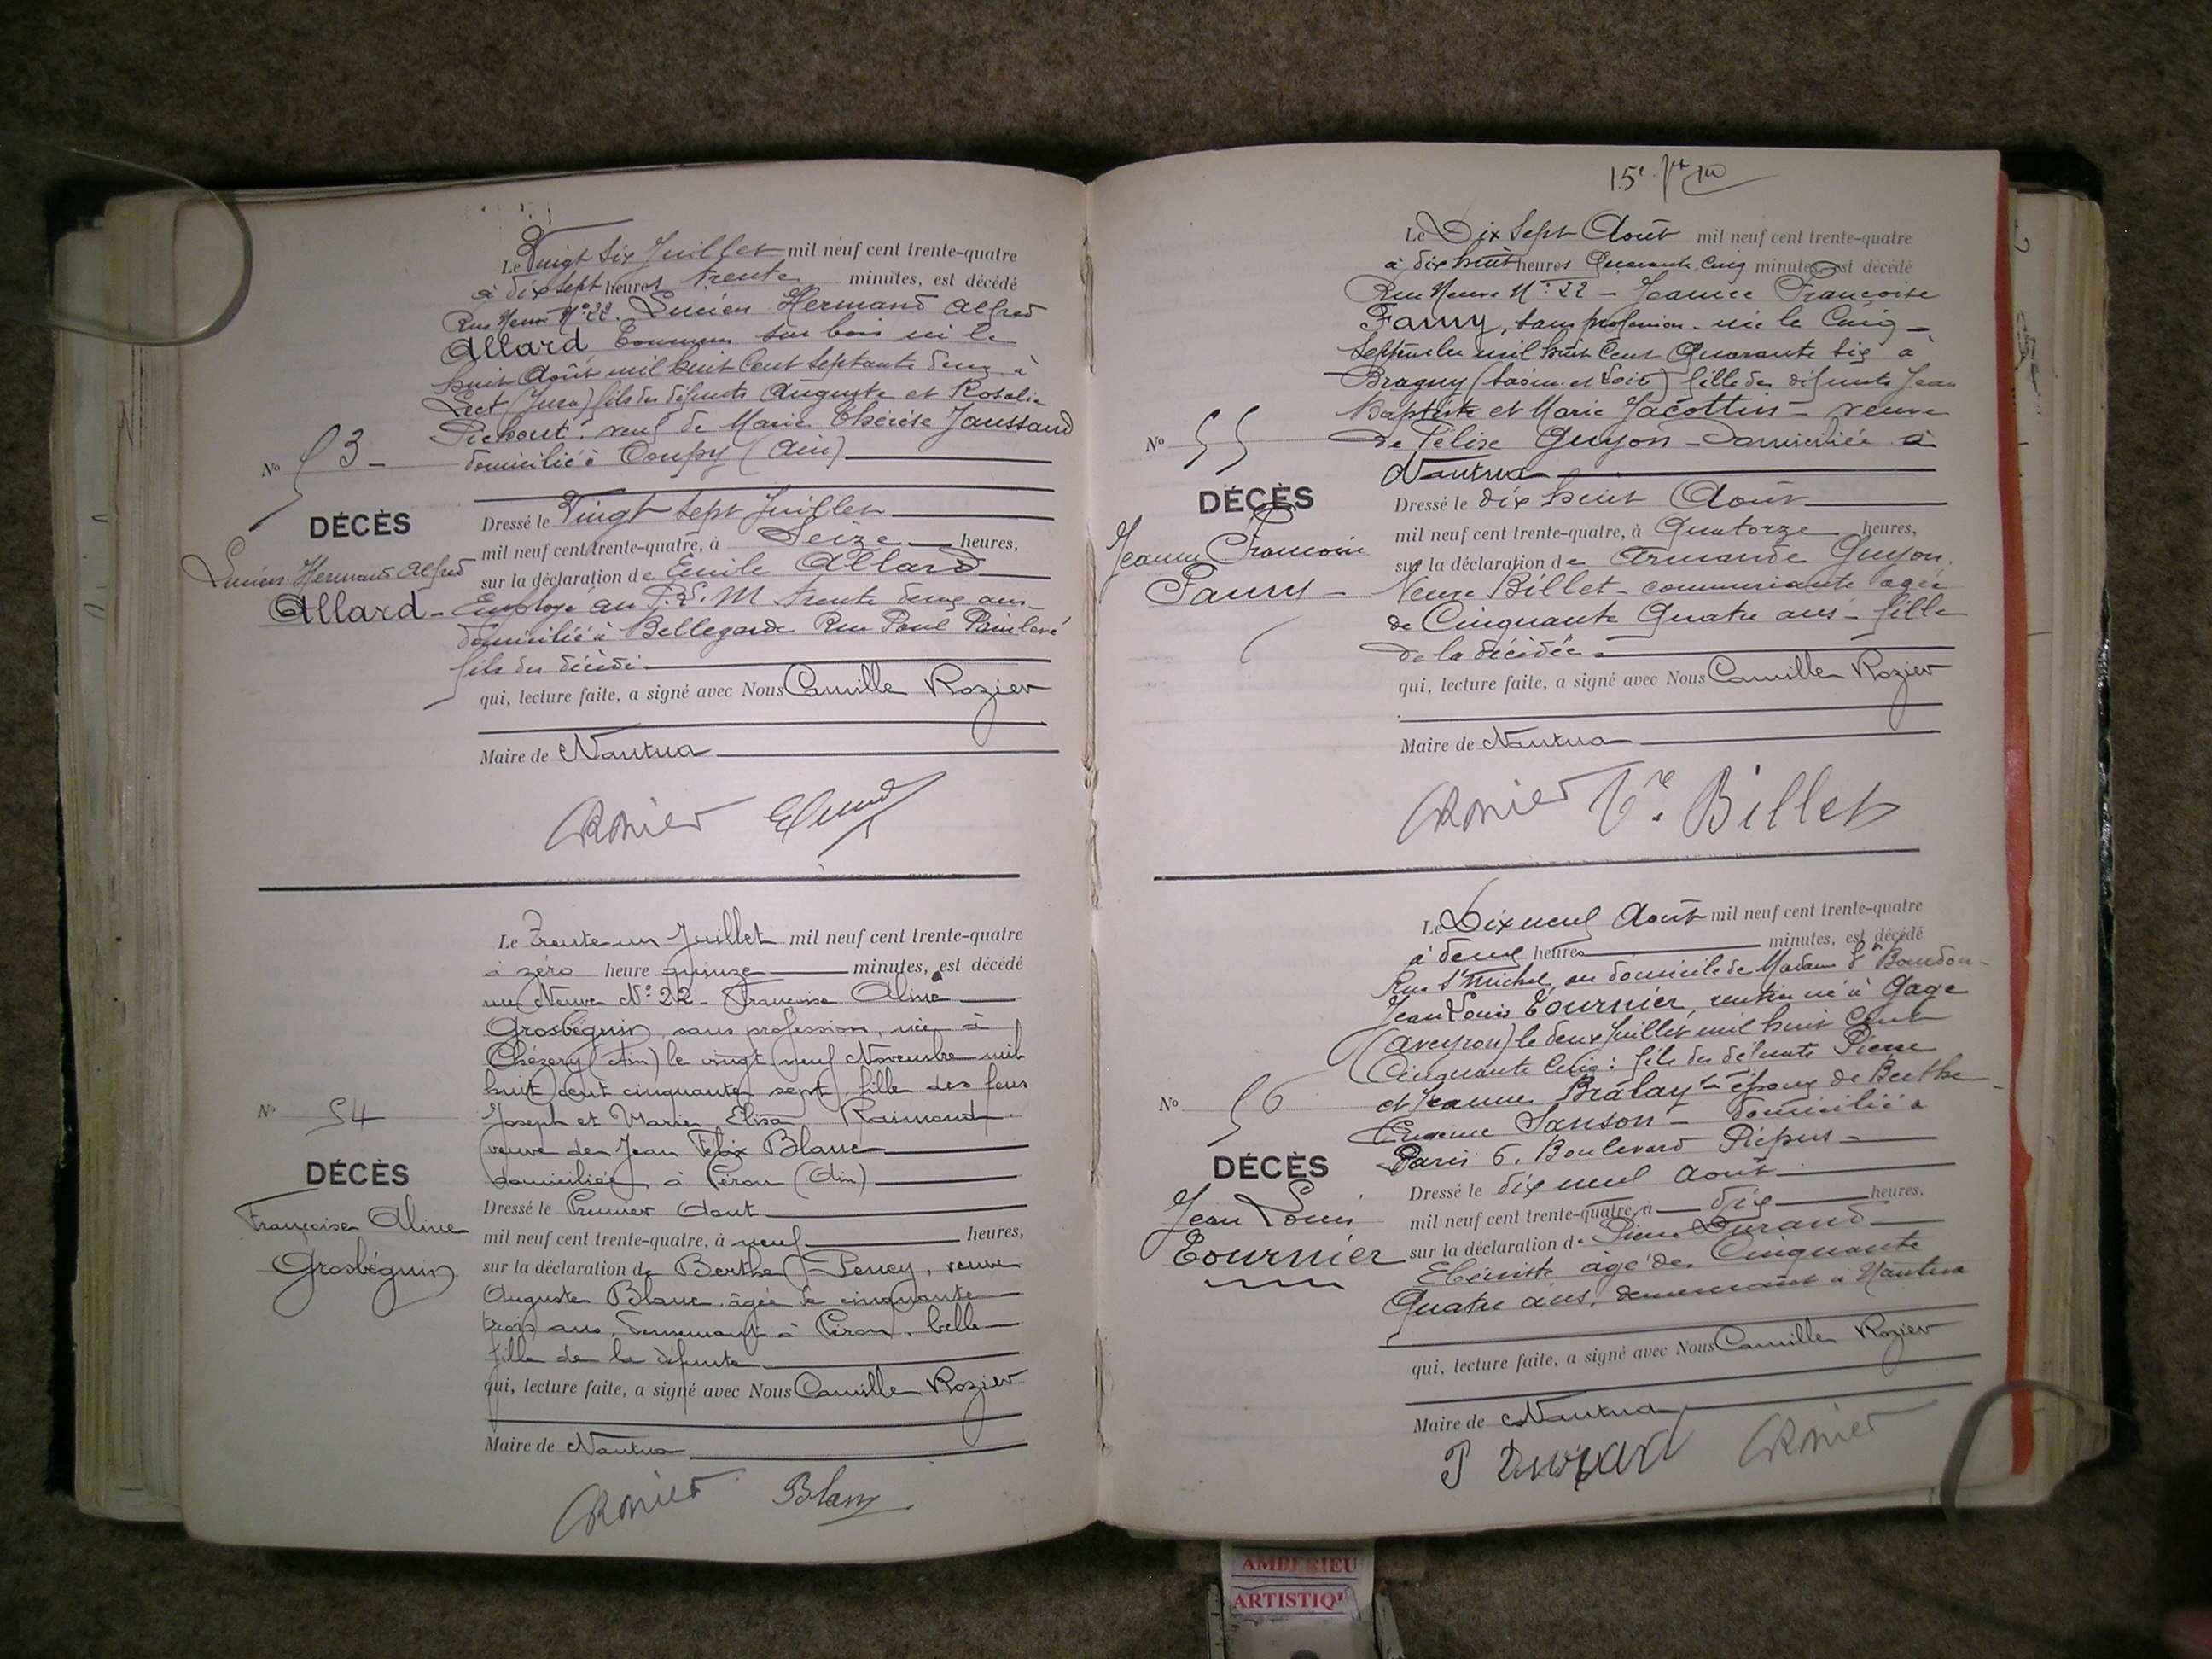 Le Vingt six Juillet mil neuf cent trente-quatre
à dix sept heures trente minutes, est décédé
Rue Neuve N° 22. Lucien Hermand Alfred
Allard Tourneur sur bois né le
huit Août mil huit cent septante deux à
Lect (Jura) fils des défunts Auguste et Rosalie
veuf de Marie Thérèse Jaussaud
domicilié à Coupy (Ain)
N° 53
DÉCÈS
Lucien Hermand Alfred
Allard
Dressé le Vingt sept Juillet
mil neuf cent trente-quatre, à Seize heures,
sur la déclaration de Emile Allard
Employé au P.L.M trente deux ans
domicilié à Bellegarde Rue Paul Painlevé
fils du décédé
qui, lecture faite, a signé avec Nous Camille Rozier
Maire de Nantua
CRozier
Le Trente un Juillet mil neuf cent trente-quatre
à zéro heure quinze minutes, est décédé
rue Neuve N° 22 - Françoise Aline
Grosbéguin, sans profession, née à
Chézery (Ain) le vingt neuf Novembre mil
huit cent cinquante sept, fille des feus
Joseph et Marie Elisa Raimond
veuve de Jean Félix Blanc
domiciliée à Péron (Ain)
N° 54
DÉCÈS
Françoise Aline
Grosbéguin
Dressé le Premier Aout
mil neuf cent trente-quatre, à neuf heures,
sur la déclaration de Berthe Pency, veuve
Auguste Blanc, âgée de cinquante
trois ans, demeurant à Péron, belle
fille de la défunte
qui, lecture faite, a signé avec Nous Camille Rozier
Maire de Nantua
CRozier Blanc
15e
Le Dix sept Août mil neuf cent trente-quatre
à dix huit heures Quarante cinq minutes, est décédé
Rue Neuve N° 22 - Jeanne Françoise
Famy, sans profession - née le Cinq
Septembre mil huit cent Quarante six à
Bragny (Saône et Loire) fille des défunts Jean
Baptiste et Marie Jacottin - veuve
de Félix Guyon - Domiciliée à
Nantua
N° 55
DÉCÈS
Jeanne Françoise
Famy
Dressé le dix huit Août
mil neuf cent trente-quatre, à Quatorze heures,
sur la déclaration de Armande Guyon.
Veuve Billet - commerçante agée
de Cinquante Quatre ans - fille
de la décédée
qui, lecture faite, a signé avec Nous Camille Rozier
Maire de Nantua
CRozier Ve. Billet
Le Dix neuf Août mil neuf cent trente-quatre
à deux heures minutes, est décédé
Rue St Michel, au domicile de Madame Bourdon
Jean Louis Tournier, rentier né à Gage
(Aveyron) le deux Juillet mil huit cent
Cinquante cinq: fils des défunts Pierre
et Jeanne Bralay - époux de Berthe
Eugénie Sanson - domicilié à
Paris 6. Boulevard Picpus
N° 56
DÉCÈS
Jean Louis
Tournier
Dressé le dix neuf Août
mil neuf cent trente-quatre, à dix heures,
sur la déclaration de Pierre Durand
Ebéniste âgé de Cinquante
Quatre ans, demeurant à Nantua
qui, lecture faite, a signé avec Nous Camille Rozier
Maire de Nantua
P Durand CRozier
AMBERIEU
ARTISTIQ